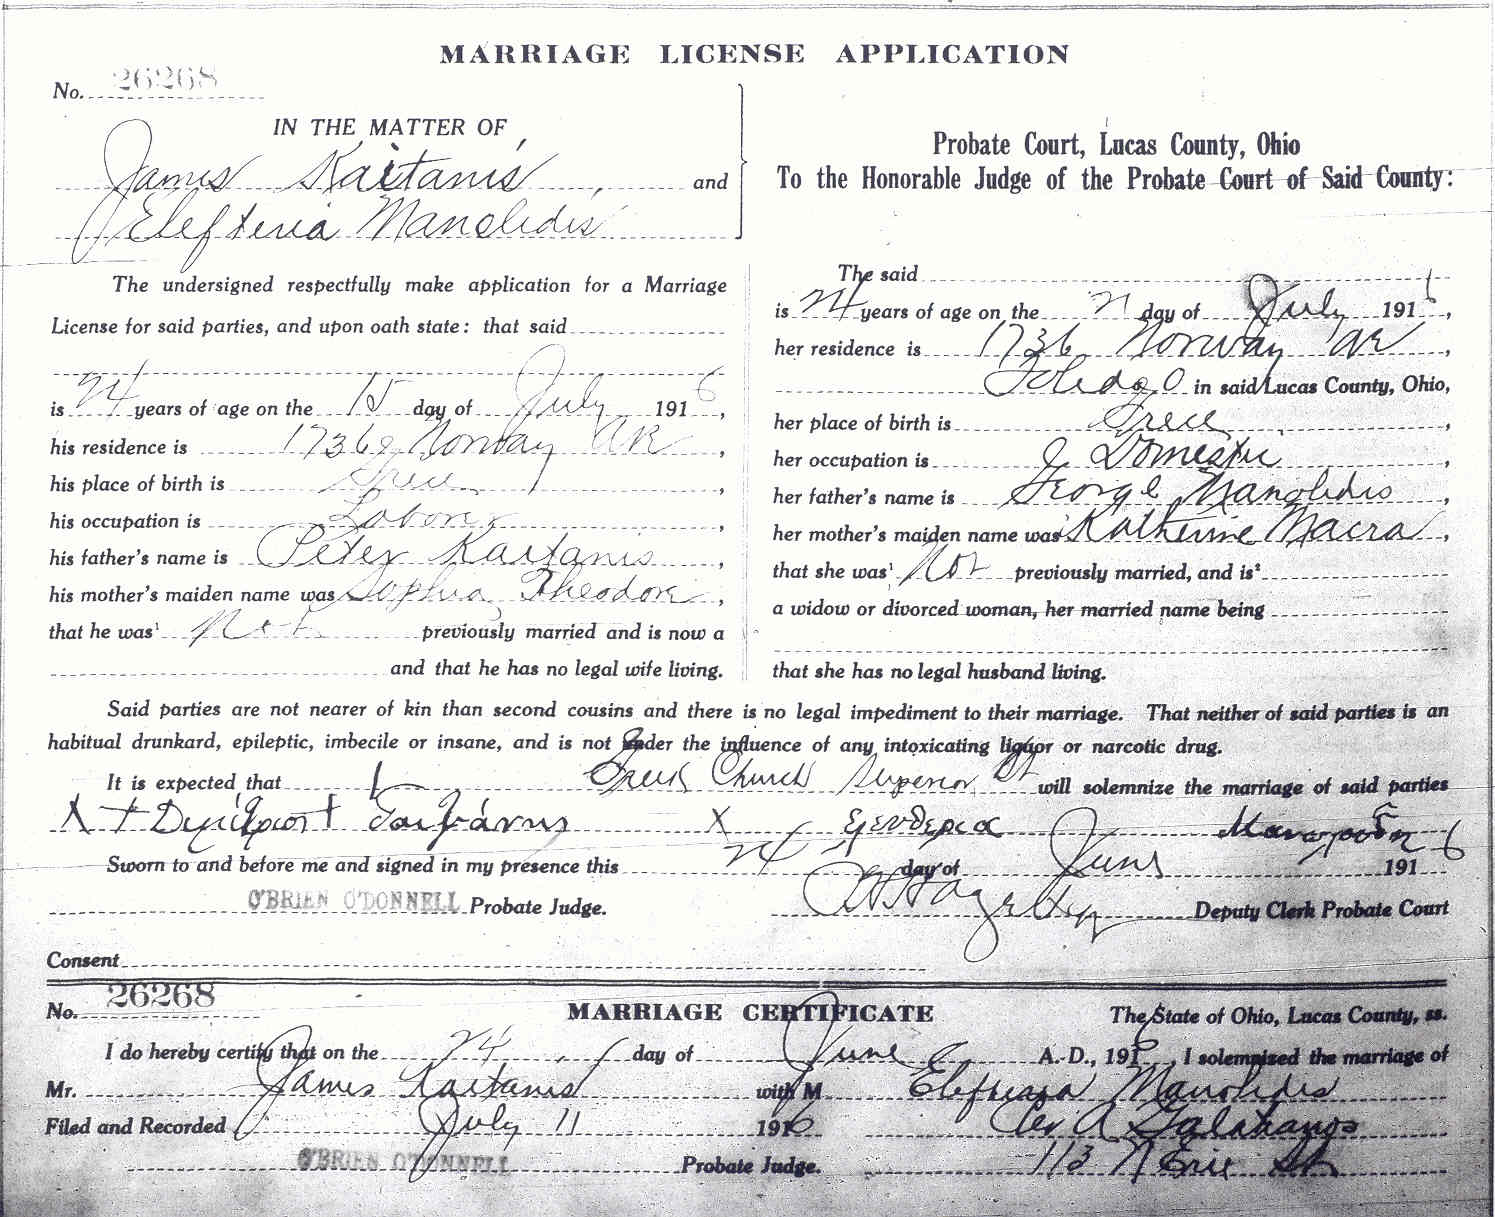 MARRIAGE LICENSE APPLICATION
No. 26268
IN THE MATTER OF
James Kaitanis and
Elefteria Manolidis
Probate Court, Lucas County, Ohio
To the Honorable Judge of the Probate Court of Said County:
The undersigned respectfully make application for a Marriage
License for said parties, and upon oath state: that said
is 24 years of age on the 15 day of July 1916,
his residence is 1736 Norway
his place of birth is Greece,
his occupation is Labor,
his father's name is Peter Kaitanis,
his mother's maiden name was Sophia Theodore,
that he was¹ Not previously married and is now a
and that he has no legal wife living.
The said
is 24 years of age on the day of July 191,
her residence is 1736 Norway
Toledo O in said Lucas County, Ohio,
her place of birth is Greece,
her occupation is Domestic,
her father's name is George Manolidis,
her mother's maiden name was Katherine Macra,
that she was¹ Not previously married, and is²
a widow or divorced woman, her married name being
that she has no legal husband living.
Said parties are not nearer of kin than second cousins and there is no legal impediment to their marriage. That neither of said parties is an
habitual drunkard, epileptic, imbecile or insane, and is not under the influence of any intoxicating liquor or narcotic drug.
It is expected that Greek Church Superior St will solemnize the marriage of said parties
X X
Sworn to and before me and signed in my presence this 24 day of June 1916
O'BRIEN O'DONNELL Probate Judge. Deputy Clerk Probate Court
Consent
No. 26268 MARRIAGE CERTIFICATE The State of Ohio, Lucas County, ss.
I do hereby certify that on the 24 day of June A. D., 1916, I solemnized the marriage of
Mr. James Kaitanis with M Elefteria Manolidis
Filed and Recorded July 11 1916
O'BRIEN O'DONNELL Probate Judge. 113 N Erie St